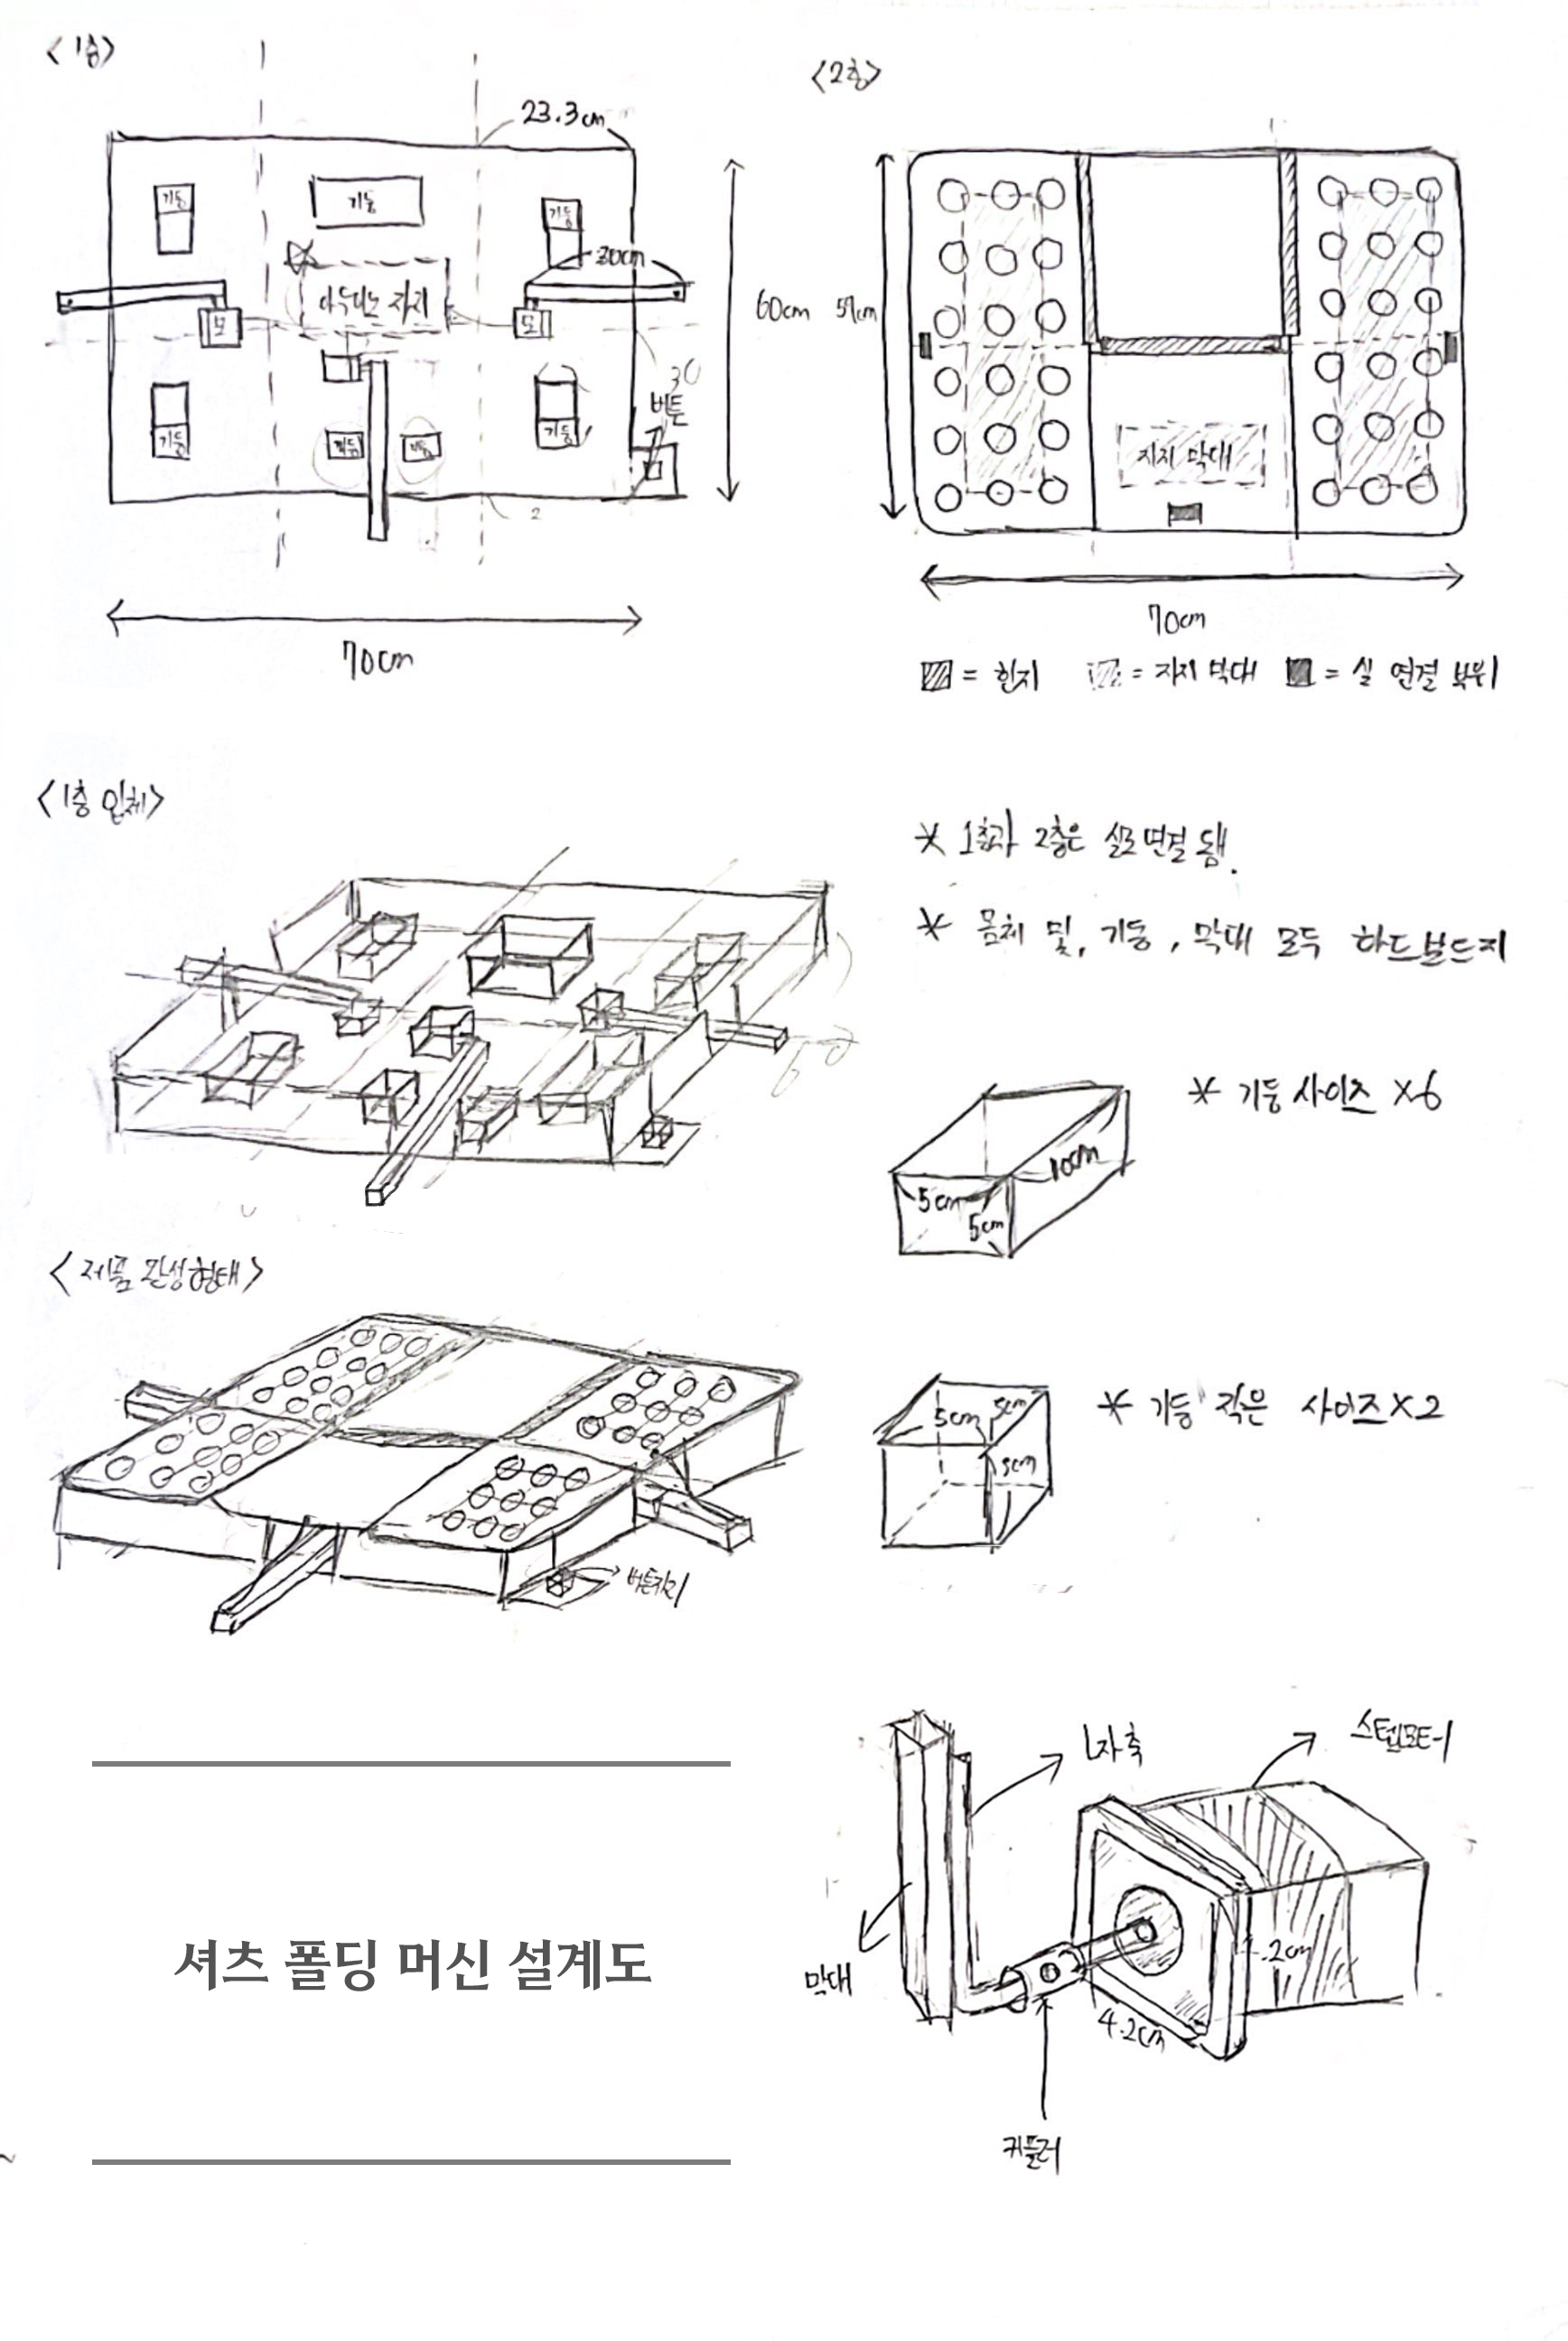 <1층>
23.3cm
기둥
기둥
기둥
30cm
아두이노 자리
모
모
60cm
30
버튼
기둥
기둥
기둥
2
70cm
<2층>
59cm
지지 막대
70cm
= 힌지
= 지지 막대
= 실 연결 부위
<1층 입체>
* 1층과 2층은 실로 연결 됨.
* 몸체 및, 기둥, 막대 모두 하드보드지
* 기둥 사이즈 X6
5cm
10cm
5cm
<제품 완성형태>
버튼자리
* 기둥 작은 사이즈 X2
5cm
5cm
5cm
셔츠 폴딩 머신 설계도
L자축
스텝모터
막대
4.2cm
커플러